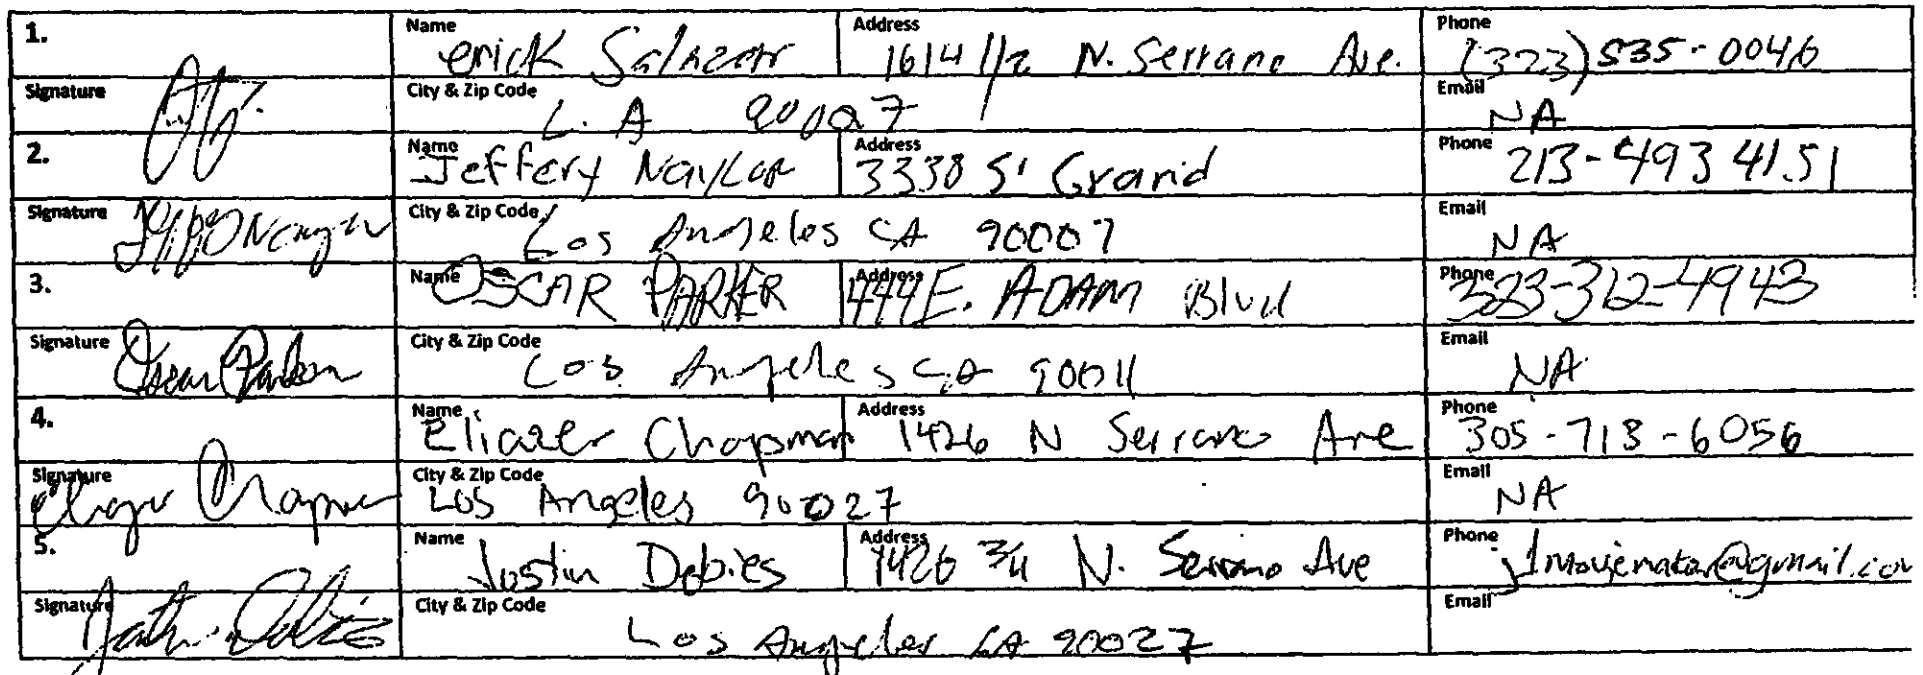 1. Name erick Salazar Address 1614 1/2 N. Serrano Ave. Phone (323) 535-0046
Signature City & Zip Code L.A 90027 Email NA
2. Name Jeffery Naylor Address 3338 S' Grand Phone 213-493 4151
Signature City & Zip Code Los Angeles CA 90007 Email NA
3. Name OSCAR PARKER Address 444 E. ADAM Blvd Phone 323-312-4943
Signature Oscar Parker City & Zip Code Los Angeles CA 90011 Email NA
4. Name Eliazer Chapman Address 1426 N Serrano Ave Phone 305-713-6056
Signature City & Zip Code Los Angeles 90027 Email NA
5. Name Justin Debies Address 1426 3/4 N. Serrano Ave Phone j1moviemaker@gmail.com
Signature City & Zip Code Los Angeles CA 90027 Email